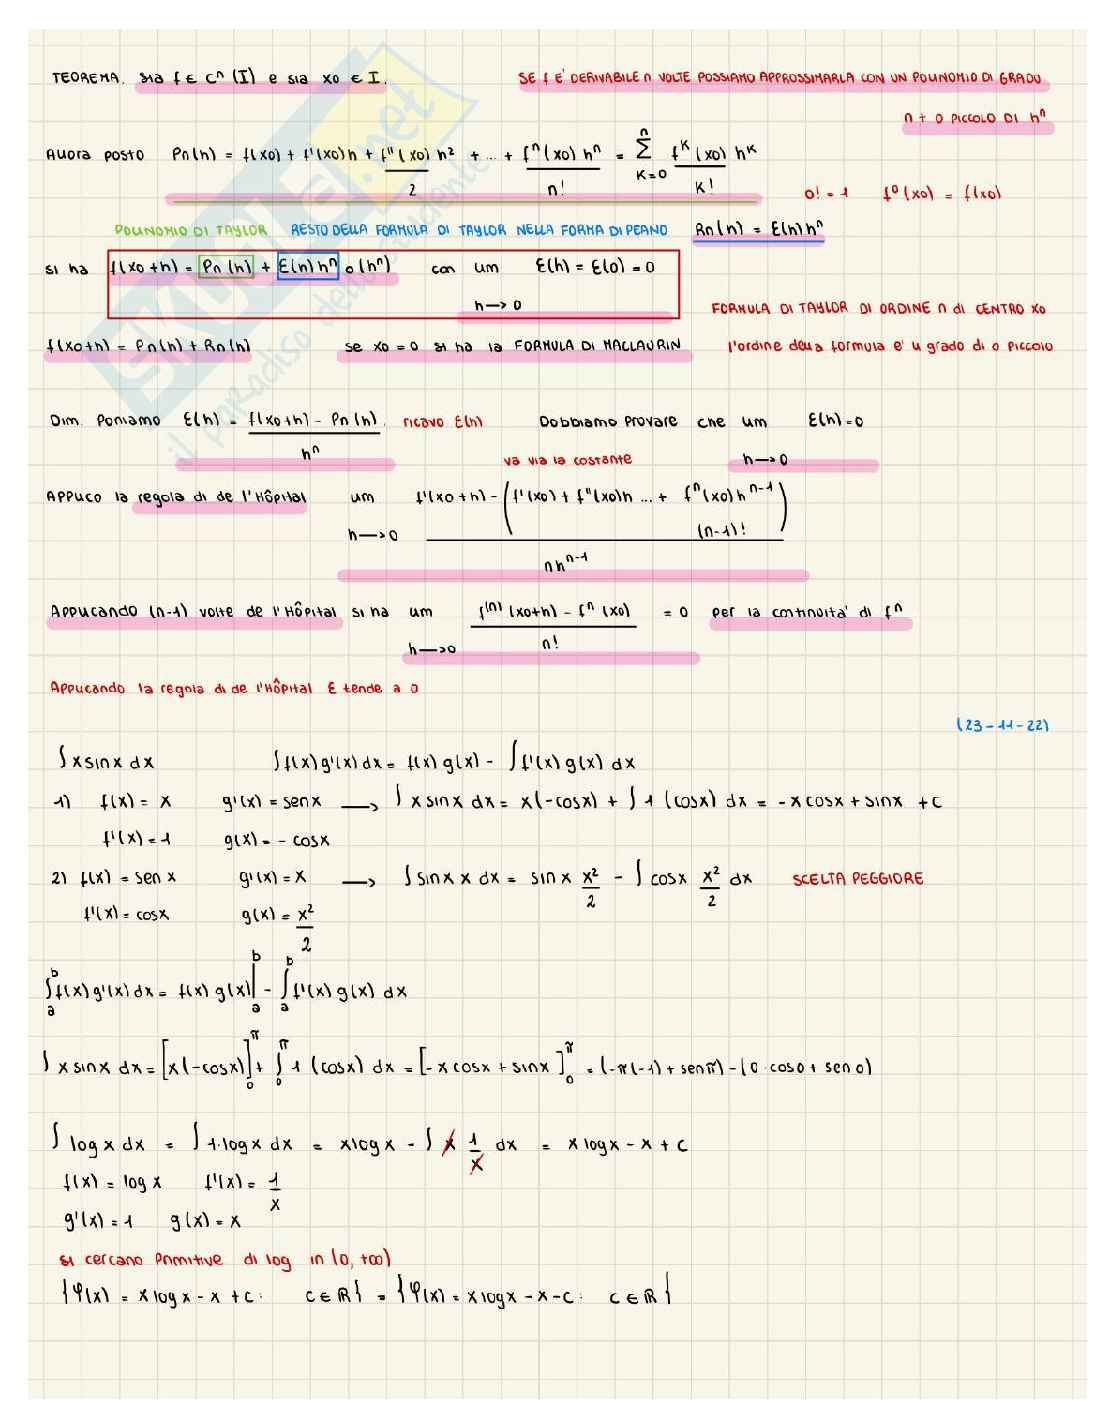 TEOREMA. sia f ∈ Cⁿ (I) e sia x0 ∈ I. SE f E' DERIVABILE n VOLTE POSSIAMO APPROSSIMARLA CON UN POLINOMIO DI GRADO
n + o PICCOLO DI hⁿ
Allora posto Pn(h) = f(x0) + f'(x0)h + f''(x0)/2 h² + ... + fⁿ(x0)/n! hⁿ = Σ_{K=0}^{n} fᴷ(x0)/K! hᴷ
0! = 1 f⁰(x0) = f(x0)
POLINOMIO DI TAYLOR RESTO DELLA FORMULA DI TAYLOR NELLA FORMA DI PEANO Rn(h) = Ɛ(h)hⁿ
si ha f(x0+h) = Pn(h) + Ɛ(h)hⁿ o(hⁿ) con lim Ɛ(h) = Ɛ(0) = 0
h→0 FORMULA DI TAYLOR DI ORDINE n di CENTRO x0
f(x0+h) = Pn(h) + Rn(h) se x0 = 0 si ha la FORMULA DI MACLAURIN l'ordine della formula e' il grado di o piccolo
Dim. Poniamo Ɛ(h) = f(x0+h) - Pn(h) / hⁿ . ricavo Ɛ(h) Dobbiamo provare che lim Ɛ(h) = 0
va via la costante h→0
Applico la regola di de l'Hôpital lim f'(x0+h) - (f'(x0) + f''(x0)h ... + fⁿ(x0)hⁿ⁻¹/(n-1)!)
h→0
nhⁿ⁻¹
Applicando (n-1) volte de l'Hôpital si ha lim f⁽ⁿ⁾(x0+h) - fⁿ(x0) / n! = 0 per la continuita' di fⁿ
h→0
Applicando la regola di de l'Hôpital Ɛ tende a 0
(23-11-22)
∫ x sin x dx ∫ f(x) g'(x) dx = f(x) g(x) - ∫ f'(x) g(x) dx
1) f(x) = x g'(x) = sen x → ∫ x sin x dx = x(-cosx) + ∫ 1 (cosx) dx = -x cosx + sinx + c
f'(x) = 1 g(x) = - cosx
2) f(x) = sen x g'(x) = x → ∫ sin x x dx = sin x x²/2 - ∫ cosx x²/2 dx SCELTA PEGGIORE
f'(x) = cosx g(x) = x²/2
∫ₐᵇ f(x) g'(x) dx = f(x) g(x)|ₐᵇ - ∫ₐᵇ f'(x) g(x) dx
∫ x sin x dx = [x(-cosx)]₀^π + ∫₀^π 1 (cosx) dx = [-x cosx + sinx]₀^π = (-π(-1) + senπ) - (0·cos0 + sen 0)
∫ log x dx = ∫ 1·log x dx = x log x - ∫ x 1/x dx = x log x - x + c
f(x) = log x f'(x) = 1/x
g'(x) = 1 g(x) = x
si cercano primitive di log in (0, +∞)
{φ(x) = x log x - x + c : c ∈ ℝ} = {φ(x) = x log x - x - c : c ∈ ℝ}
SKUOLA.net
il paradiso dello studente